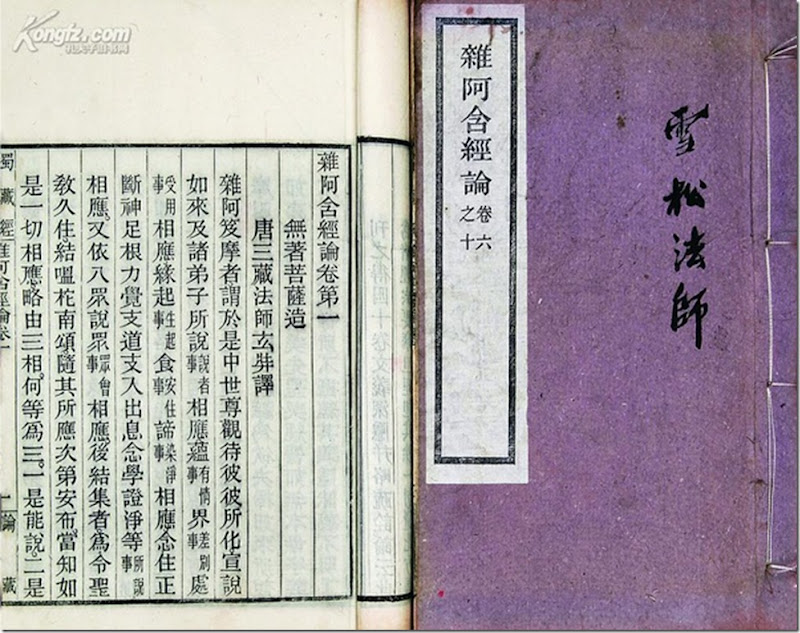 雪松法師
雜阿含經論 卷六之十
雜阿含經論卷第一
無著菩薩造
唐三藏法師玄奘譯
雜阿笈摩者謂於是中世尊觀待彼彼所化宣說
如來及諸弟子所說說者事相應蘊有情事界差別事處
受用事相應緣起生起事食安住事諦染淨事相應念住正
斷神足根力覺支道支入出息念學證淨等所說事
相應。又依八眾說眾眾會事相應。後結集者。為令聖
教久住結嗢柁南頌。隨其所應次第安布。當知如
是一切相應略由三相。何等為三。一是能說。二是
蜀藏經 雜阿含經論卷一 一 論藏
Kongfz.com
孔夫子旧书网